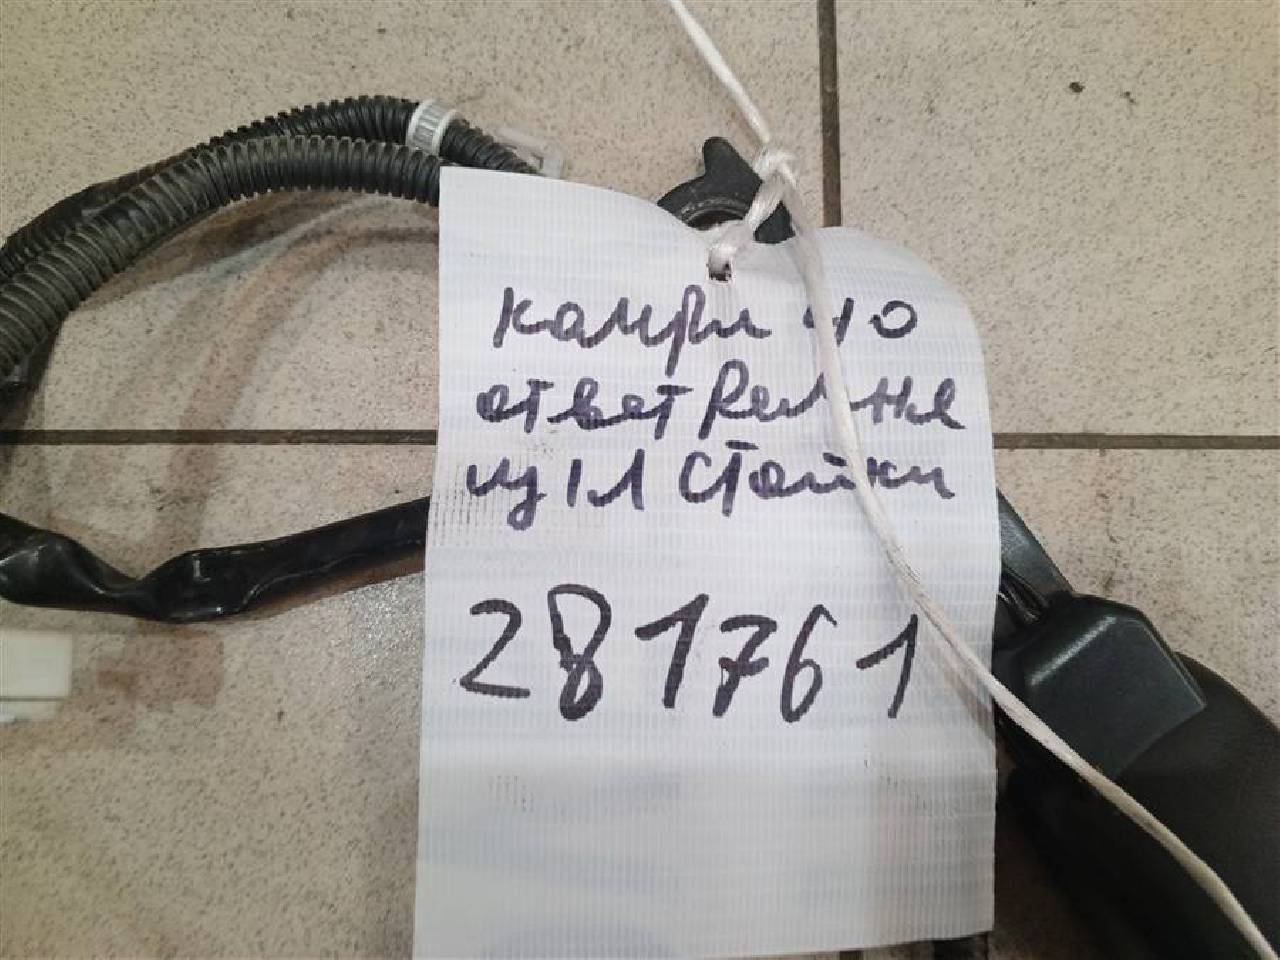 камри 40
ответ ремня
из 1Л стойки
281761